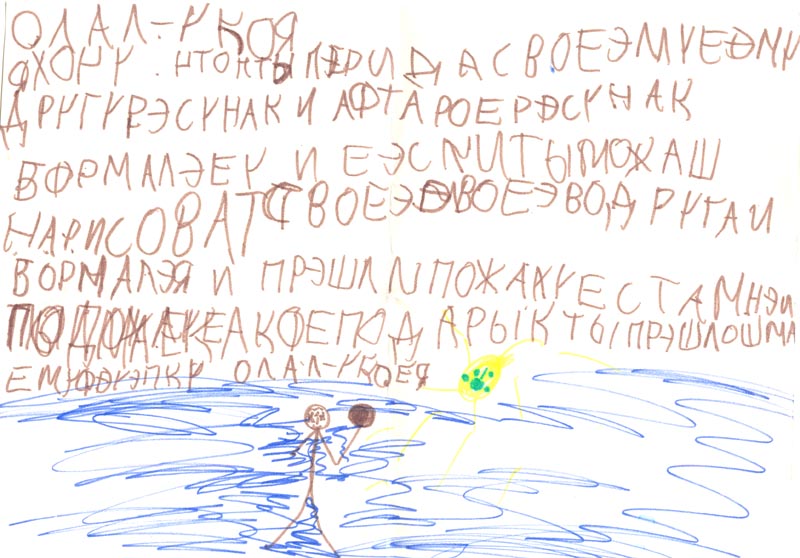 ОЛАЛ-УКОЯ
ЯХОЧУ. ЧТОКТЫ ПЭРИДАСВОЕЭМУЕЭМУ
ДРУГУРЭСУНАК И АФТАРОЕРЭСУНАК
ВФРМАЛЭЕУ И ЕЭС NИТЫМОЖАШ
НАРИСОВАТ СВОЕЭ ВОЕЭВОДРУГАИ
ВОРМАЛЭЯ И ПРЭШЛИ ПОЖАХУЕСТАМНЭИ
АКОЕПОДАРЫК ТЫПРЭШЛОШМА
ОЛАЛ-УКОЕЯ